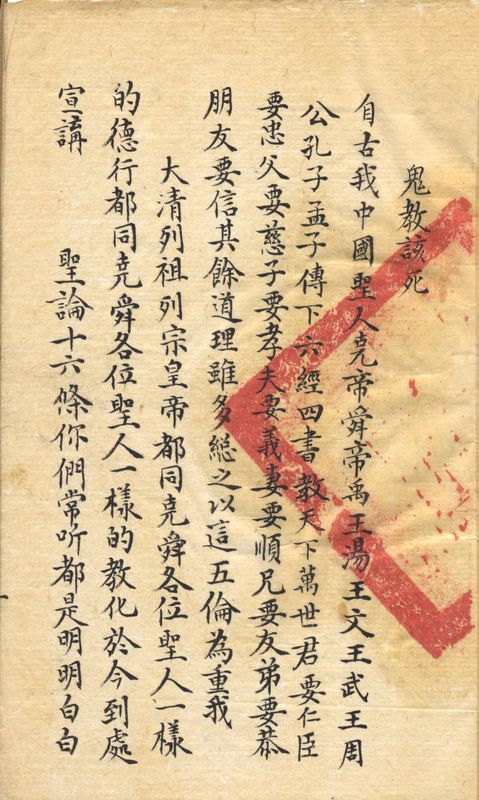 鬼教該死
自古我中國聖人堯帝舜帝禹王湯王文王武王周
公孔子孟子傳下六經四書教天下萬世君要仁臣
要忠父要慈子要孝夫要義妻要順兄要友弟要恭
朋友要信其餘道理雖多總之以這五倫為重我
大清列祖列宗皇帝都同堯舜各位聖人一樣
的德行都同堯舜各位聖人一樣的教化於今到處
宣講　聖論十六條你們常听都是明明白白